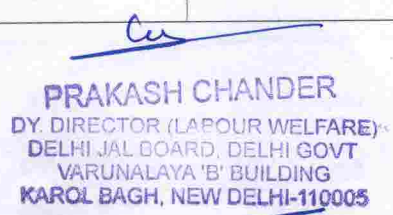 PRAKASH CHANDER
DY. DIRECTOR (LABOUR WELFARE)
DELHI JAL BOARD, DELHI GOVT
VARUNALAYA 'B' BUILDING
KAROL BAGH, NEW DELHI-110005